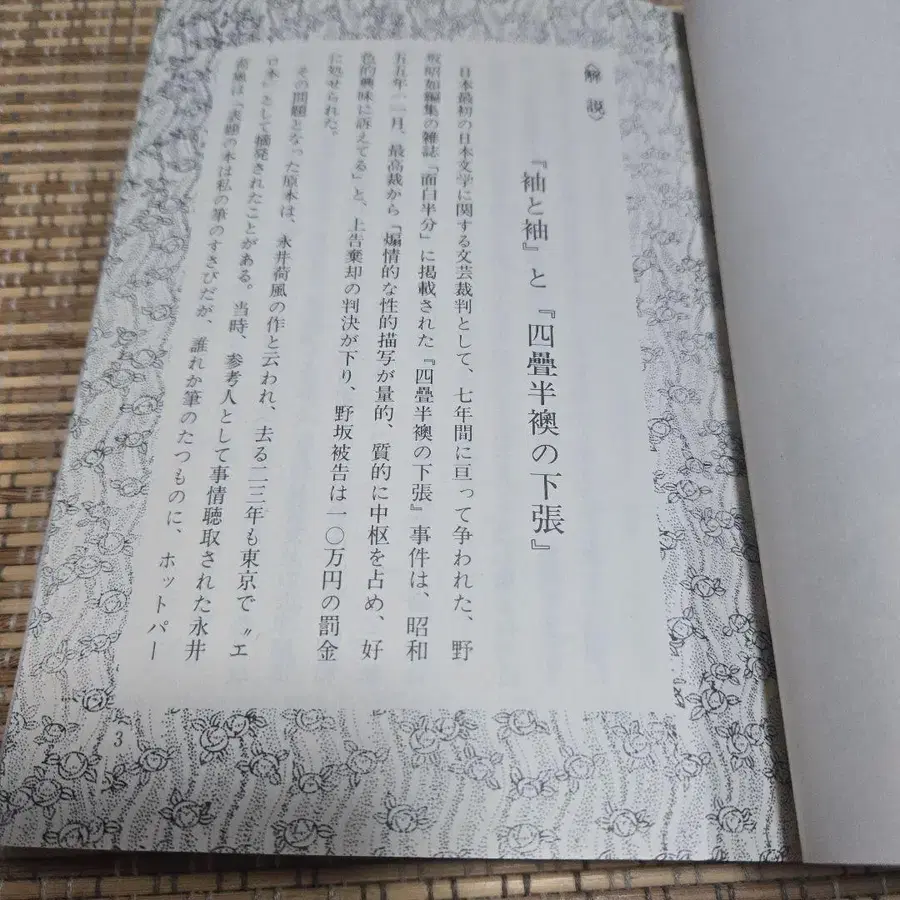 〈解説〉
『袖と袖』と『四疊半襖の下張』
日本最初の日本文学に関する文芸裁判として、七年間に亘って争われた、野
坂昭如編集の雑誌「面白半分」に掲載された『四疊半襖の下張』事件は、昭和
五五年一一月、最高裁から「煽情的な性的描写が量的、質的に中枢を占め、好
色的興味に訴えてる」と、上告棄却の判決が下り、野坂被告は一〇万円の罰金
に処せられた。
その問題となった原本は、永井荷風の作と云われ、去る二三年も東京で〝エ
ロ本〟として摘発されたことがある。当時、参考人として事情聴取された永井
荷風は「表題の本は私の筆のすさびだが、誰れか筆のたつものに、ホットパー
3